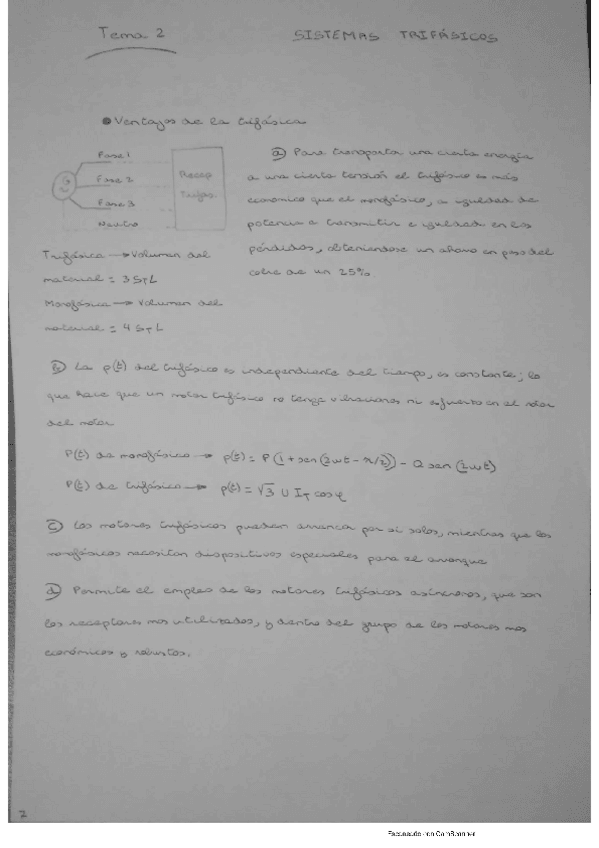 Tema 2
SISTEMAS TRIFÁSICOS
● Ventajas de la trifásica
Fase 1
Fase 2
Fase 3
Neutro
Recep
Trifás.
a) Para transportar una cierta energía
a una cierta tensión el trifásico es más
economico que el monofásico, a igualdad de
potencia a transmitir e igualdad en las
pérdidas, obteniendose un ahorro en peso del
cobre de un 25%.
Trifásica → Volumen del
material = 3 STL
Monofásica → Volumen del
material = 4 STL
b) La p(t) del trifásico es independiente del tiempo, es constante; lo
que hace que un motor trifásico no tenga vibraciones ni esfuerzo en el rotor
del motor
P(t) de monofásico → p(t) = P (1 + sen (2wt - π/2)) - Q sen (2wt)
P(t) de trifásico → p(t) = √3 U IT cos φ
c) Los motores trifásicos pueden arrancar por si solos, mientras que los
monofásicos necesitan dispositivos especiales para el arranque
d) Permite el empleo de los motores trifásicos asíncronos, que son
los receptores mas utilizados, y dentro del grupo de los motores mas
económicos y robustos.
2
Escaneado con CamScanner